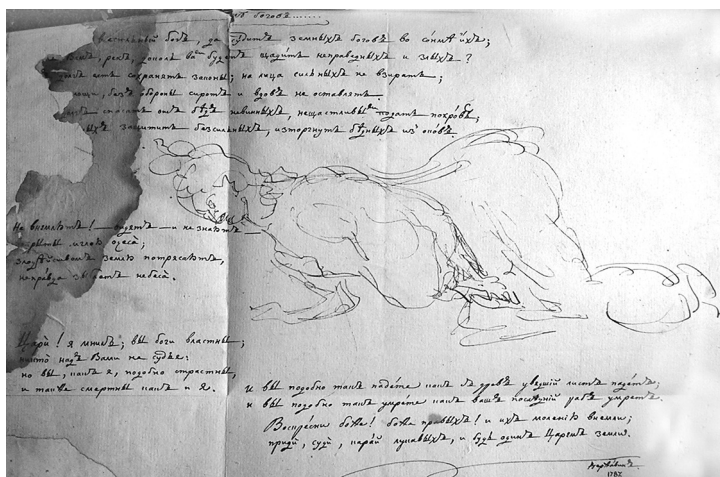 боговъ.......
богъ, да судитъ земныхъ боговъ во сонмѣ ихъ;
рекъ, доколь будетъ щадить неправедныхъ и злыхъ ?
есть сохранять законы; на лица сильныхъ не взирать ;
безъ обороны сиротъ и вдовъ не оставлять.
спасать отъ бѣдъ невинныхъ, нещастливымъ подать покровъ ;
защитить безсильныхъ, изторгнуть бѣдныхъ изъ оковъ.
Не внемлютъ! — видятъ — и не знаютъ
мглою очеса ;
землю потрясаютъ,
неправда зыблетъ небеса.
Цари ! я мнилъ ; вы боги властны ;
никто надъ Вами не судья :
но вы, какъ я, подобно страстны,
и также смертны какъ и я.
и вы подобно такъ падете какъ съ древъ увядшій листъ падетъ ;
и вы подобно такъ умрете какъ вашъ послѣдній рабъ умретъ.
Воскресни боже ! боже правыхъ ! и ихъ моленію внемли ;
приди, суди, карай лукавыхъ, и будь одинъ Царемъ земли.
Державинъ
178